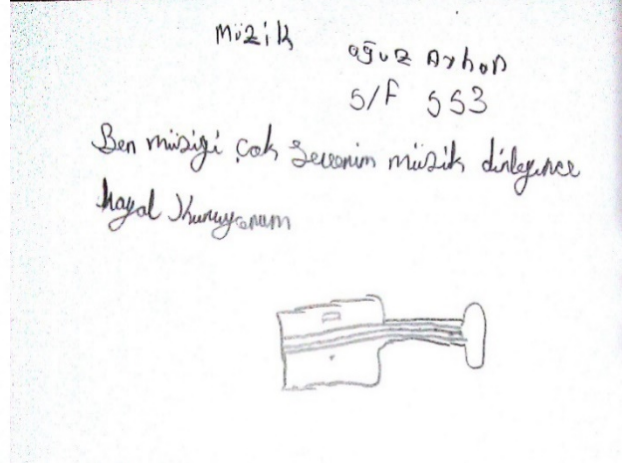 müzik
oğuz Ayhan
5/F 553
Ben müsiği çok severim müzik dinleyince
hayal Kuruyorum